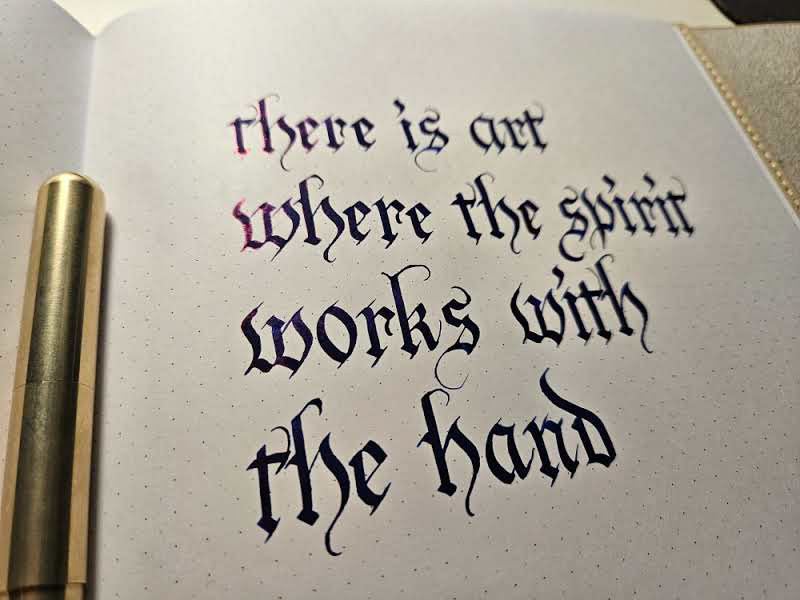 there is art
where the spirit
works with
the hand